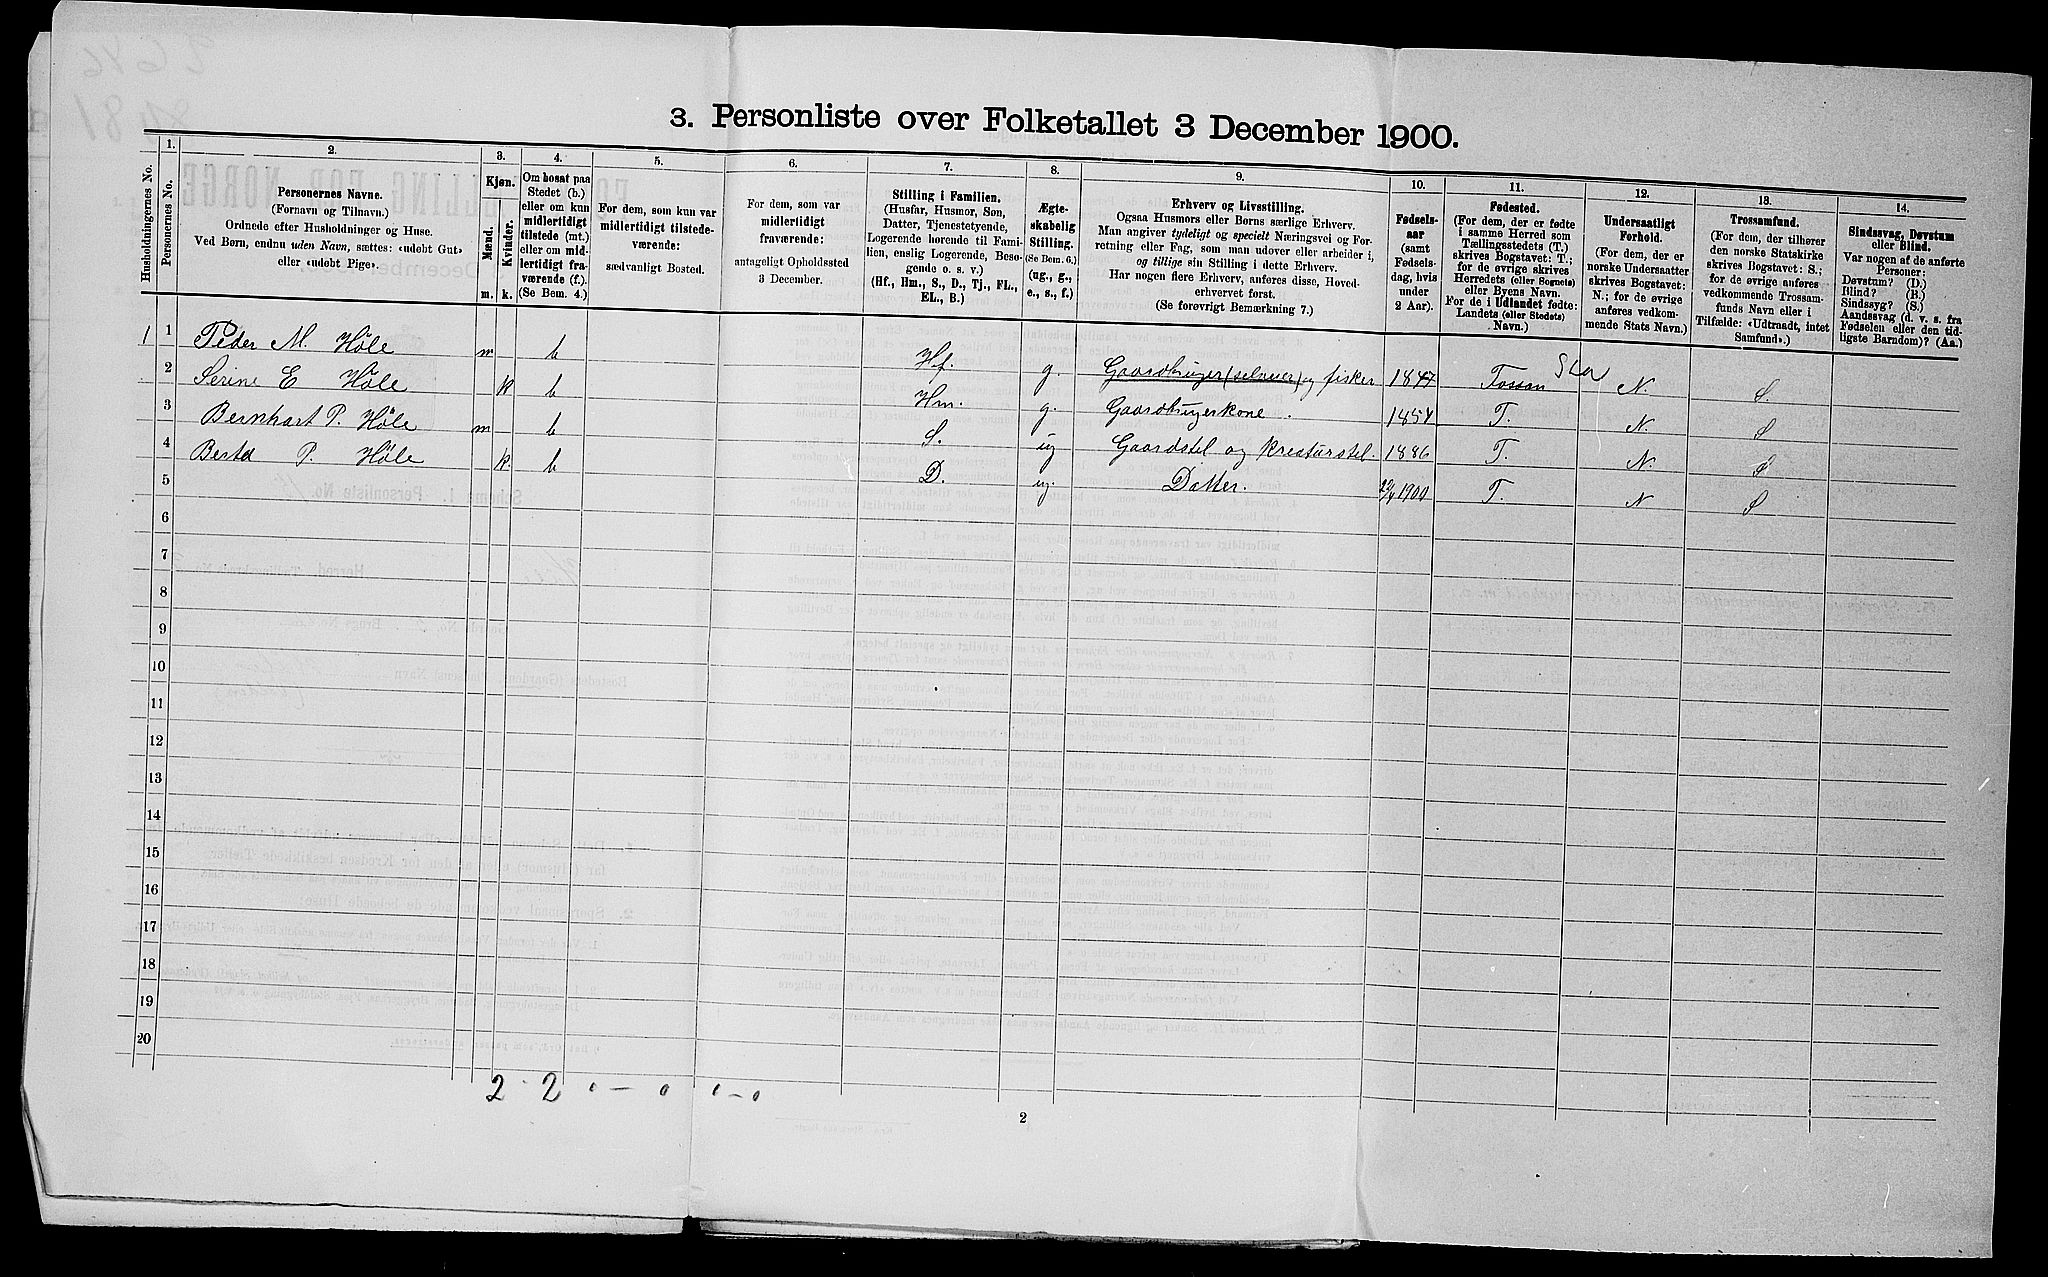 3. Personliste over Folketallet 3 December 1900.
Husholdningernes No.
1.
Personernes No.
2.
Personernes Navne.
(Fornavn og Tilnavn.)
Ordnede efter Husholdninger og Huse.
Ved Børn, endnu uden Navn, sættes: «udøbt Gut»
eller «udøbt Pige».
3.
Kjøn.
Mænd.
Kvinder.
m.
k.
4.
Om bosat paa
Stedet (b.)
eller om kun
midlertidigt
tilstede (mt.)
eller om mid-
lertidigt fra-
værende (f.).
(Se Bem. 4.)
5.
For dem, som kun var
midlertidigt tilstede-
værende:
sædvanligt Bosted.
6.
For dem, som var
midlertidigt
fraværende:
antageligt Opholdssted
3 December.
7.
Stilling i Familien.
(Husfar, Husmor, Søn,
Datter, Tjenestetyende,
Logerende hørende til Fami-
lien, enslig Logerende, Besø-
gende o. s. v.)
(Hf., Hm., S., D., Tj., FL.,
EL., B.)
8.
Ægte-
skabelig
Stilling.
(Se Bem. 6.)
(ug., g.,
e., s., f.)
9.
Erhverv og Livsstilling.
Ogsaa Husmors eller Børns særlige Erhverv.
Man angiver tydeligt og specielt Næringsvei og For-
retning eller Fag, som man udøver eller arbeider i,
og tillige sin Stilling i dette Erhverv.
Har nogen flere Erhverv, anføres disse, Hoved-
erhvervet først.
(Se forøvrigt Bemærkning 7.)
10.
Fødsels-
aar
(samt
Fødsels-
dag, hvis
under
2 Aar).
11.
Fødested.
(For dem, der er fødte
i samme Herred som
Tællingsstedets (T.)
skrives Bogstavet: T.;
for de øvrige skrives
Herredets (eller Sognets)
eller Byens Navn.
For de i Udlandet fødte:
Landets (eller Stedets)
Navn.)
12.
Undersaatligt
Forhold.
(For dem, der er
norske Undersaatter
skrives Bogstavet:
N.; for de øvrige
anføres vedkom-
mende Stats Navn.)
13.
Trossamfund.
(For dem, der tilhører
den norske Statskirke
skrives Bogstavet: S.;
for de øvrige anføres
vedkommende Trossam-
funds Navn eller i
Tilfælde: «Udtraadt, intet
Samfund».)
14.
Sindssvag, Døvstum
eller Blind.
Var nogen af de anførte
Personer:
Døvstum? (D.)
Blind? (B.)
Sindssyg? (S.)
Aandssvag (d. v. s. fra
Fødselen eller den tid-
ligste Barndom)? (Aa.)
1 1 Peder M. Høle m b Hf. g. Gaardbruger (selveier) og fisker 1847 Fossan N. S.
2 Serine E Høle k b Hm. g. Gaardbrugerkone. 1854 T. N. S
3 Bernhart P. Høle m b S. ug Gaardstel og kreaturstel. 1886 T. N. S
4 Berta P. Høle k. b D. ug. Datter. 1900 T. N S
5
6
7
8
9
10
11
12
13
14
15
16
17
18
19
20
2 - 2 0 - 0 0 - 0
2